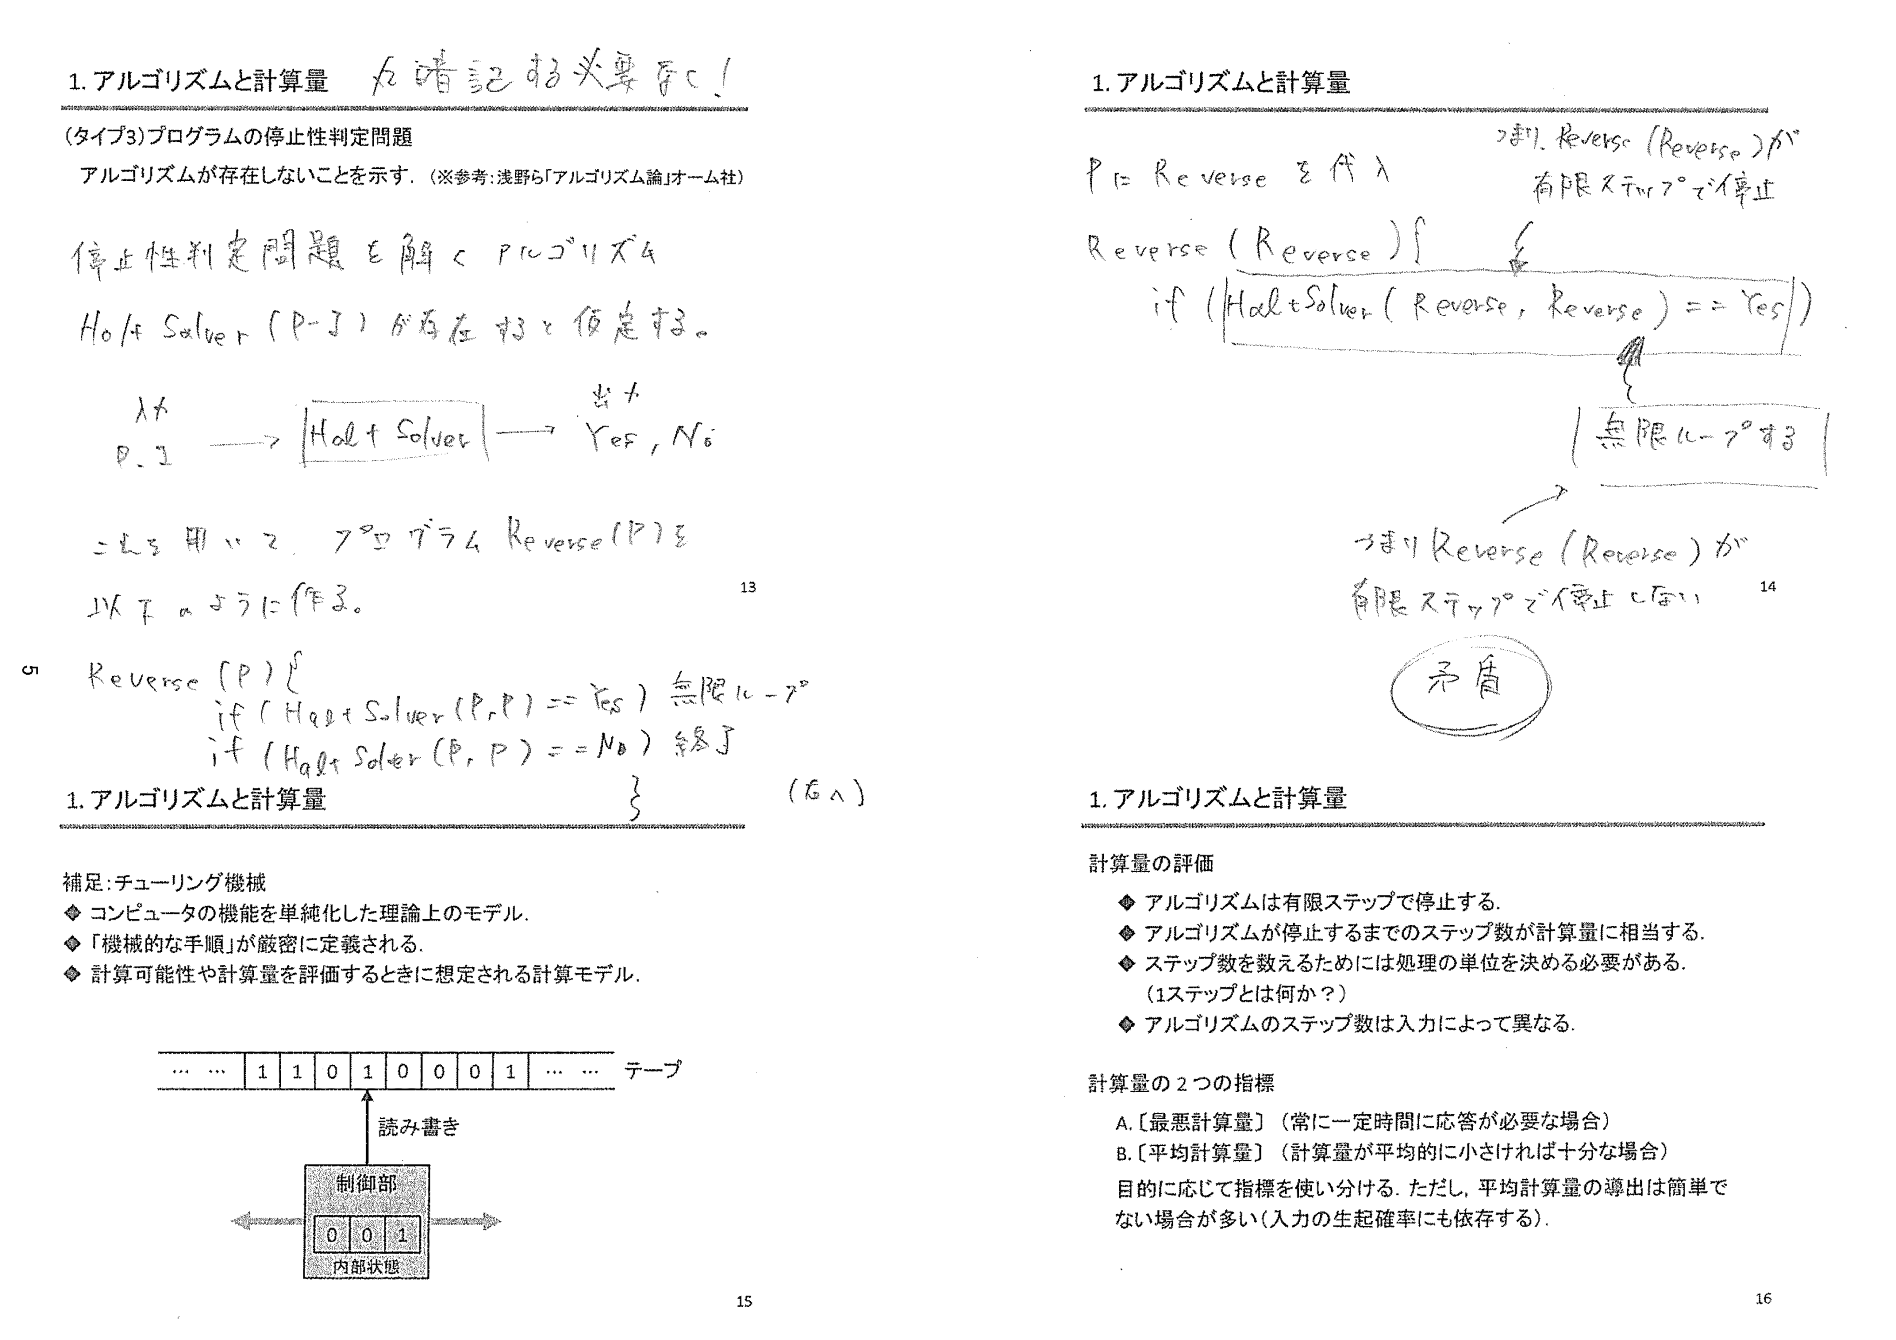 1. アルゴリズムと計算量 丸暗記する必要なし!
(タイプ3)プログラムの停止性判定問題
アルゴリズムが存在しないことを示す. (※参考:浅野ら「アルゴリズム論」オーム社)
停止性判定問題を解くアルゴリズム
Halt Solver (P, I) が存在すると仮定する。
入力
P, I
Halt Solver
出力
Yes, No
これを用いて、プログラム Reverse(P)を
以下のように作る。
13
5
Reverse (P) {
if (Halt Solver (P, P) == Yes) 無限ループ
if (Halt Solver (P, P) == No) 終了
}
(右へ)
1. アルゴリズムと計算量
PにReverseを代入
つまり、Reverse (Reverse)が
有限ステップで停止
Reverse (Reverse) {
if (HaltSolver (Reverse, Reverse) == Yes)
無限ループする
つまりReverse (Reverse)が
有限ステップで停止しない
14
矛盾
1. アルゴリズムと計算量
補足:チューリング機械
❖ コンピュータの機能を単純化した理論上のモデル.
❖ 「機械的な手順」が厳密に定義される.
❖ 計算可能性や計算量を評価するときに想定される計算モデル.
… … 1 1 0 1 0 0 0 1 … … テープ
読み書き
制御部
0 0 1
内部状態
15
1. アルゴリズムと計算量
計算量の評価
❖ アルゴリズムは有限ステップで停止する.
❖ アルゴリズムが停止するまでのステップ数が計算量に相当する.
❖ ステップ数を数えるためには処理の単位を決める必要がある.
(1ステップとは何か?)
❖ アルゴリズムのステップ数は入力によって異なる.
計算量の2つの指標
A.〔最悪計算量〕 (常に一定時間に応答が必要な場合)
B.〔平均計算量〕 (計算量が平均的に小さければ十分な場合)
目的に応じて指標を使い分ける. ただし, 平均計算量の導出は簡単で
ない場合が多い(入力の生起確率にも依存する).
16